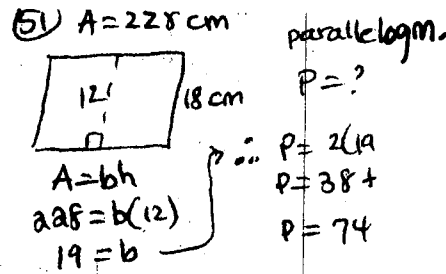 51 A=228 cm
parallelogm.
12
18 cm
P=?
A=bh
228=b(12)
19=b
∴ P= 2(19
P= 38 +
P= 74